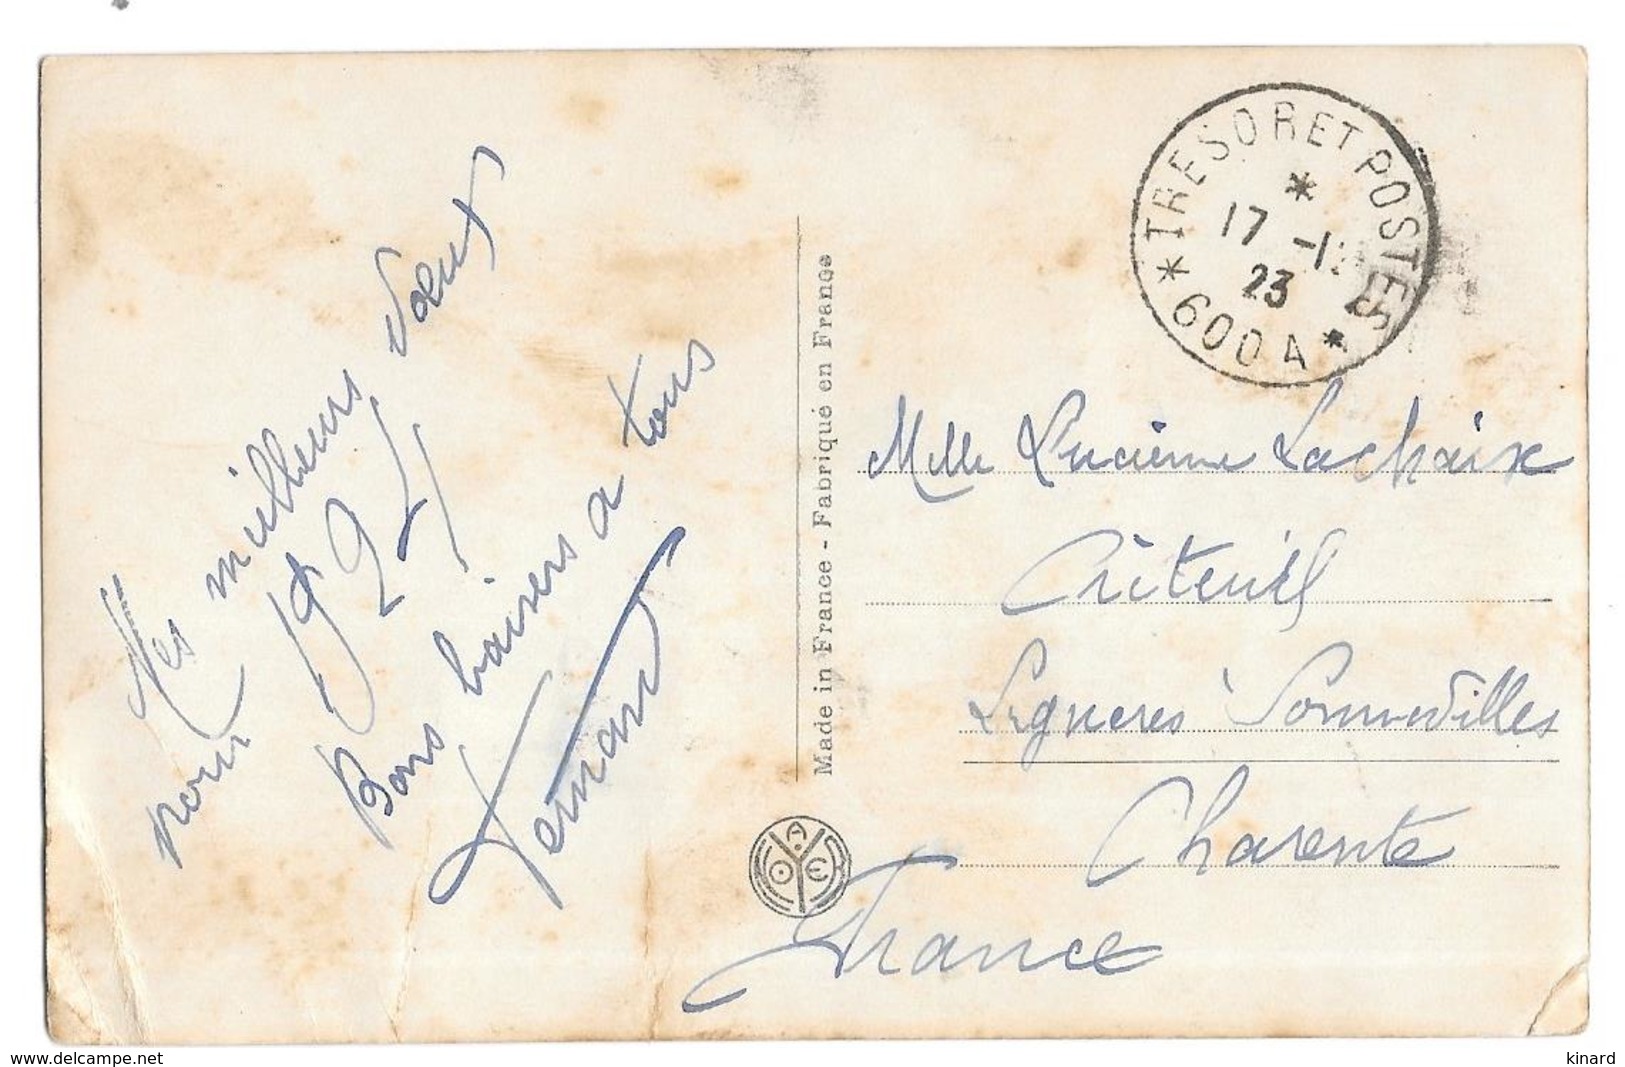 Mes meilleurs Vœux
pour 1924
Bons baisers a tous
Fernand
Made in France - Fabriqué en France
A
O E
* TRESOR ET POSTES *
*
17 -1
23
600A
Melle Lucienne Lachaix
Criteuil
Legneres Sonnevilles
Charente
France
www.delcampe.net
kinard